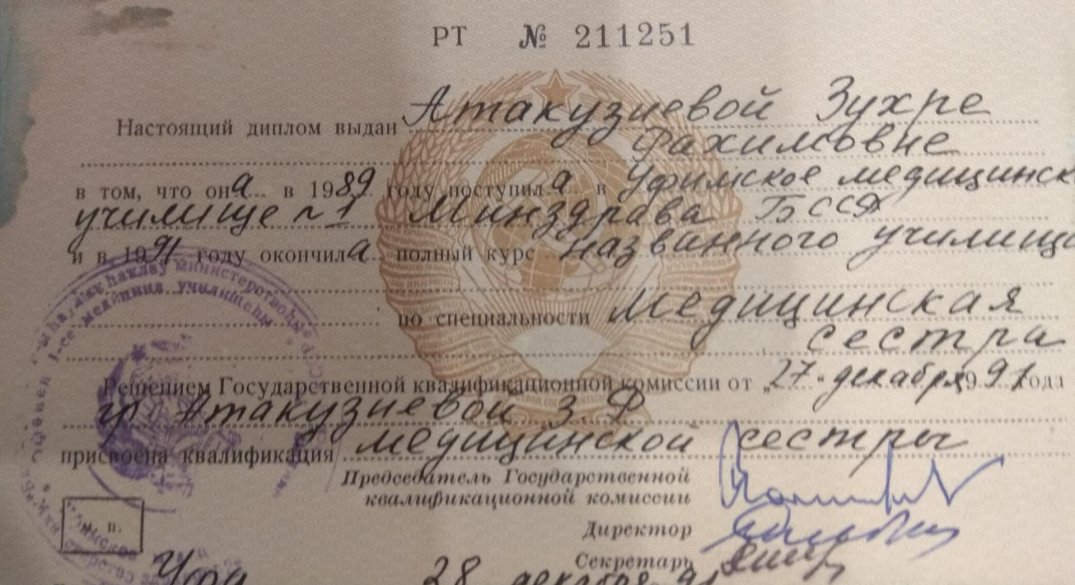 РТ № 211251
Настоящий диплом выдан Атакузиевой Зухре
Фахимовне
в том, что она в 1989 году поступила в Уфимское медицинск
училище №1 Минздрава БССР
и в 1991 году окончила полный курс названного училища
по специальности Медицинская
сестра
Решением Государственной квалификационной комиссии от „27“ декабря 1991 года
гр. Атакузиевой З.Ф
присвоена квалификация медицинской сестры
Председатель Государственной
квалификационной комиссии
Директор
Секретарь
м. п.
28 декабря 91